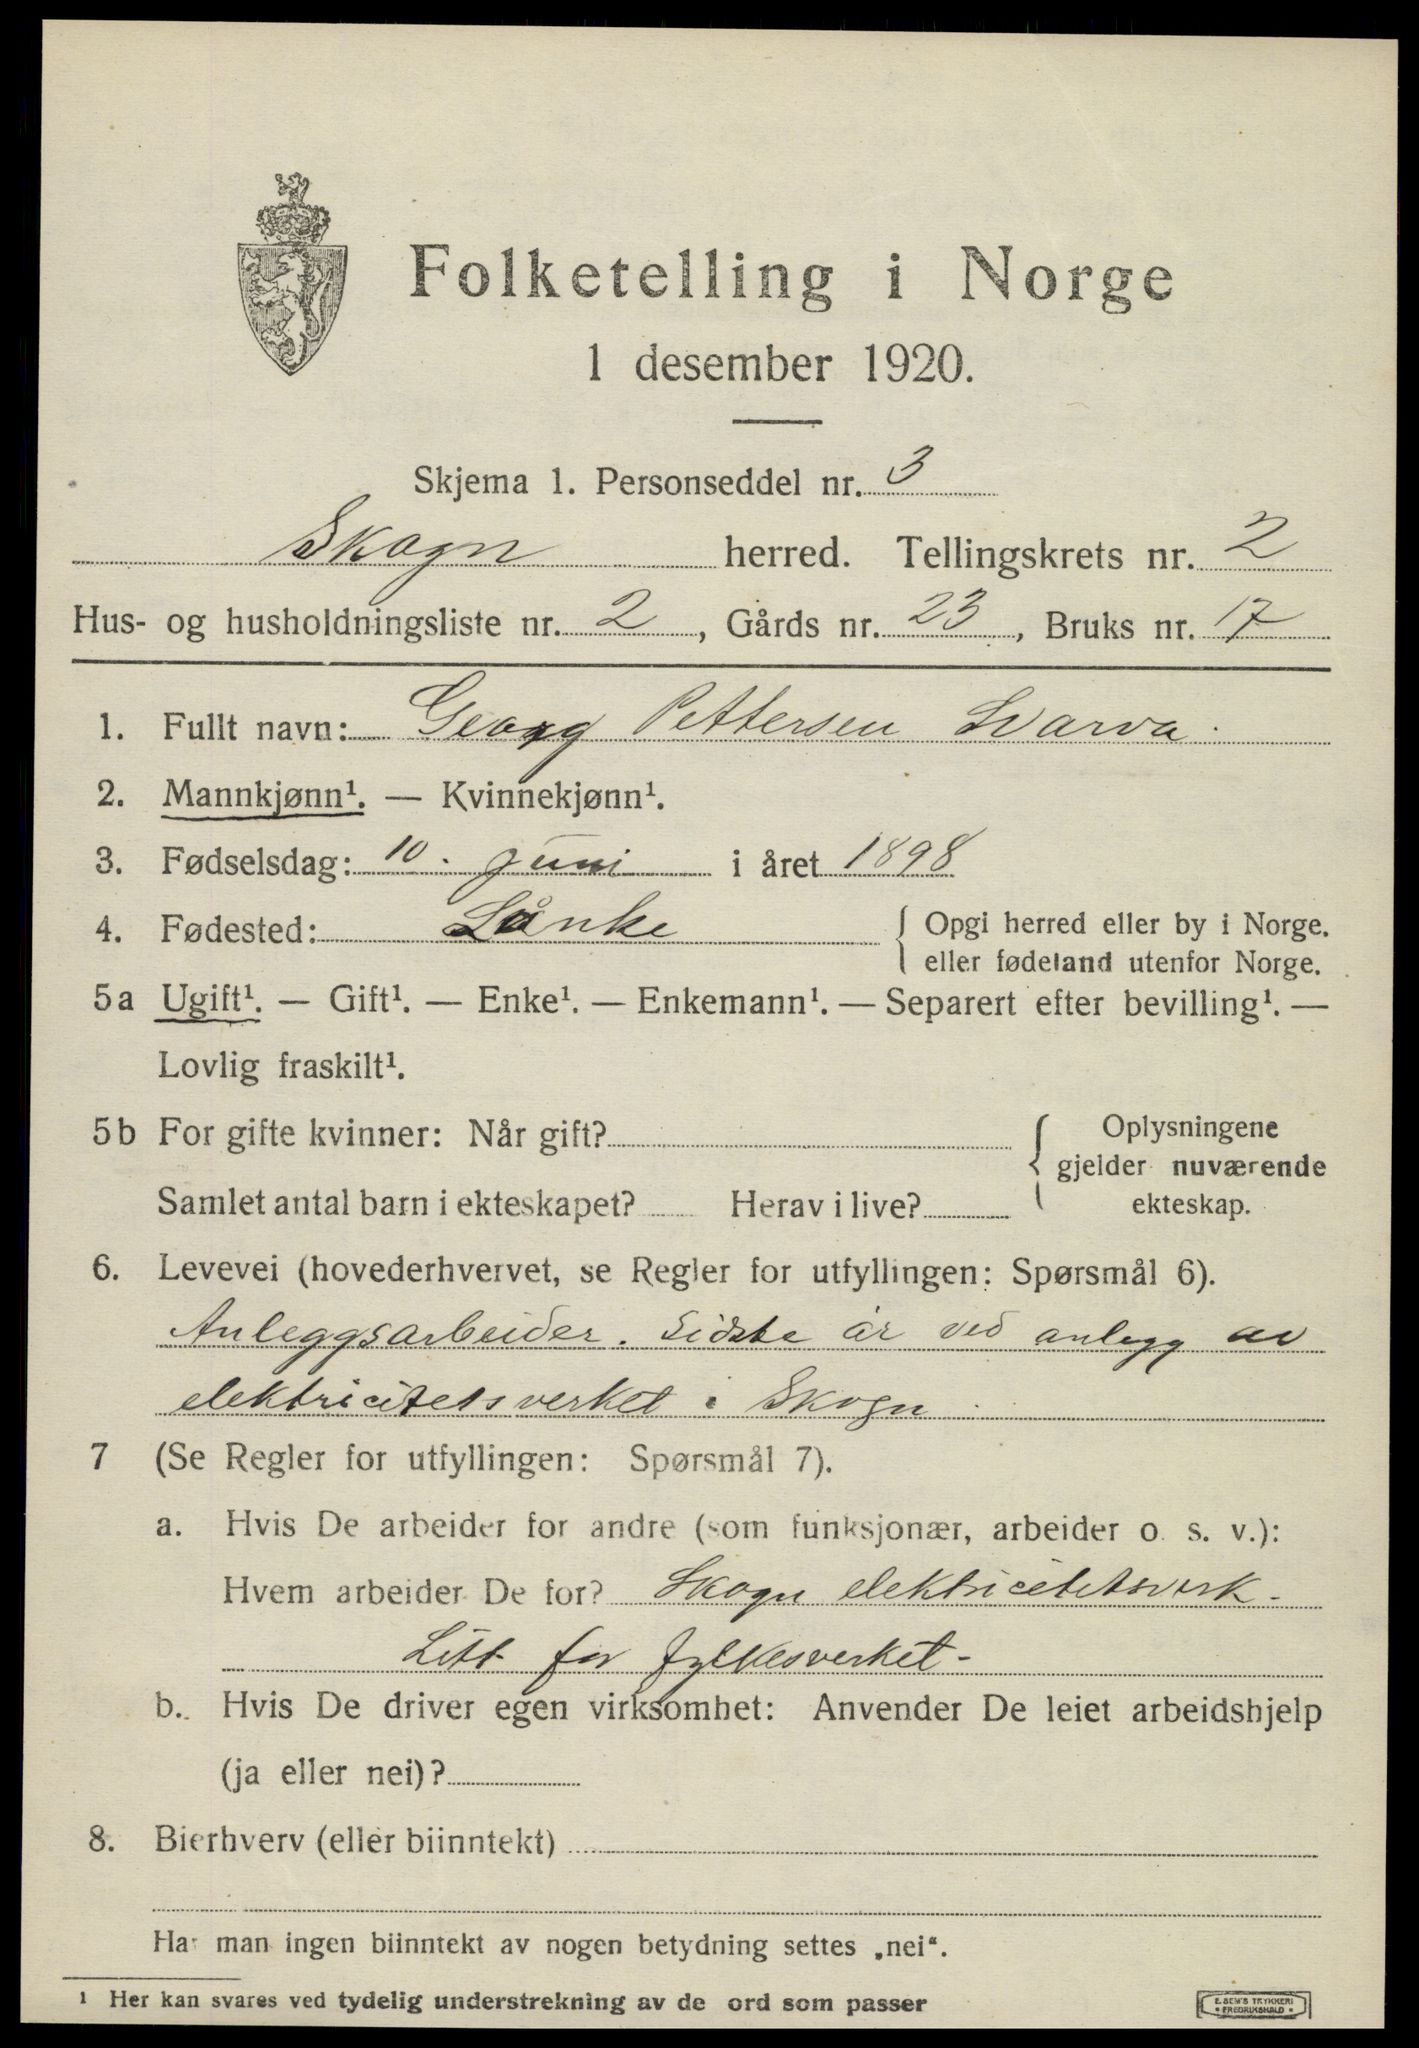 Folketelling i Norge
1 desember 1920.
Skjema 1. Personseddel nr. 3
Skogn herred. Tellingskrets nr. 2
Hus- og husholdningsliste nr. 2, Gårds nr. 23, Bruks nr. 17
1. Fullt navn: Georg Pettersen Svarva.
2. Mannkjønn¹. — Kvinnekjønn¹.
3. Fødselsdag: 10. juni i året 1898
4. Fødested: Lånke { Opgi herred eller by i Norge.
eller fødeland utenfor Norge.
5a Ugift¹. — Gift¹. — Enke¹. — Enkemann¹. — Separert efter bevilling¹. —
Lovlig fraskilt¹.
5b For gifte kvinner: Når gift? { Oplysningene
gjelder nuværende
Samlet antal barn i ekteskapet? Herav i live? ekteskap.
6. Levevei (hovederhvervet, se Regler for utfyllingen: Spørsmål 6).
Anleggsarbeider. Sidste år ved anlegg av
elektricitetsverket i Skogn.
7 (Se Regler for utfyllingen: Spørsmål 7).
a. Hvis De arbeider for andre (som funksjonær, arbeider o. s. v.):
Hvem arbeider De for? Skogn elektricitetsverk.
Litt for fylkesverket-
b. Hvis De driver egen virksomhet: Anvender De leiet arbeidshjelp
(ja eller nei)?
8. Bierhverv (eller biinntekt)
Har man ingen biinntekt av nogen betydning settes „nei“.
¹ Her kan svares ved tydelig understrekning av de ord som passer
E. SEM'S TRYKKERI
• FREDRIKSHALD •